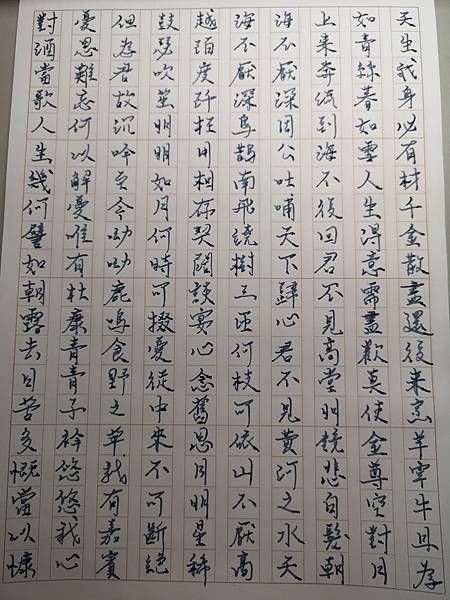 對酒當歌人生幾何譬如朝露去日苦多慨當以慷
憂思難忘何以解憂唯有杜康青青子衿悠悠我心
但為君故沉吟至今呦呦鹿鳴食野之苹我有嘉賓
鼓瑟吹笙明明如月何時可掇憂從中來不可斷絕
越陌度阡枉用相存契闊談宴心念舊恩月明星稀
海不厭深烏鵲南飛繞樹三匝何枝可依山不厭高
海不厭深周公吐哺天下歸心君不見黃河之水天
上来奔流到海不復回君不見高堂明鏡悲白髮朝
如青絲暮如雪人生得意需盡歡莫使金尊空對月
天生我身必有材千金散盡還復来烹羊宰牛且為